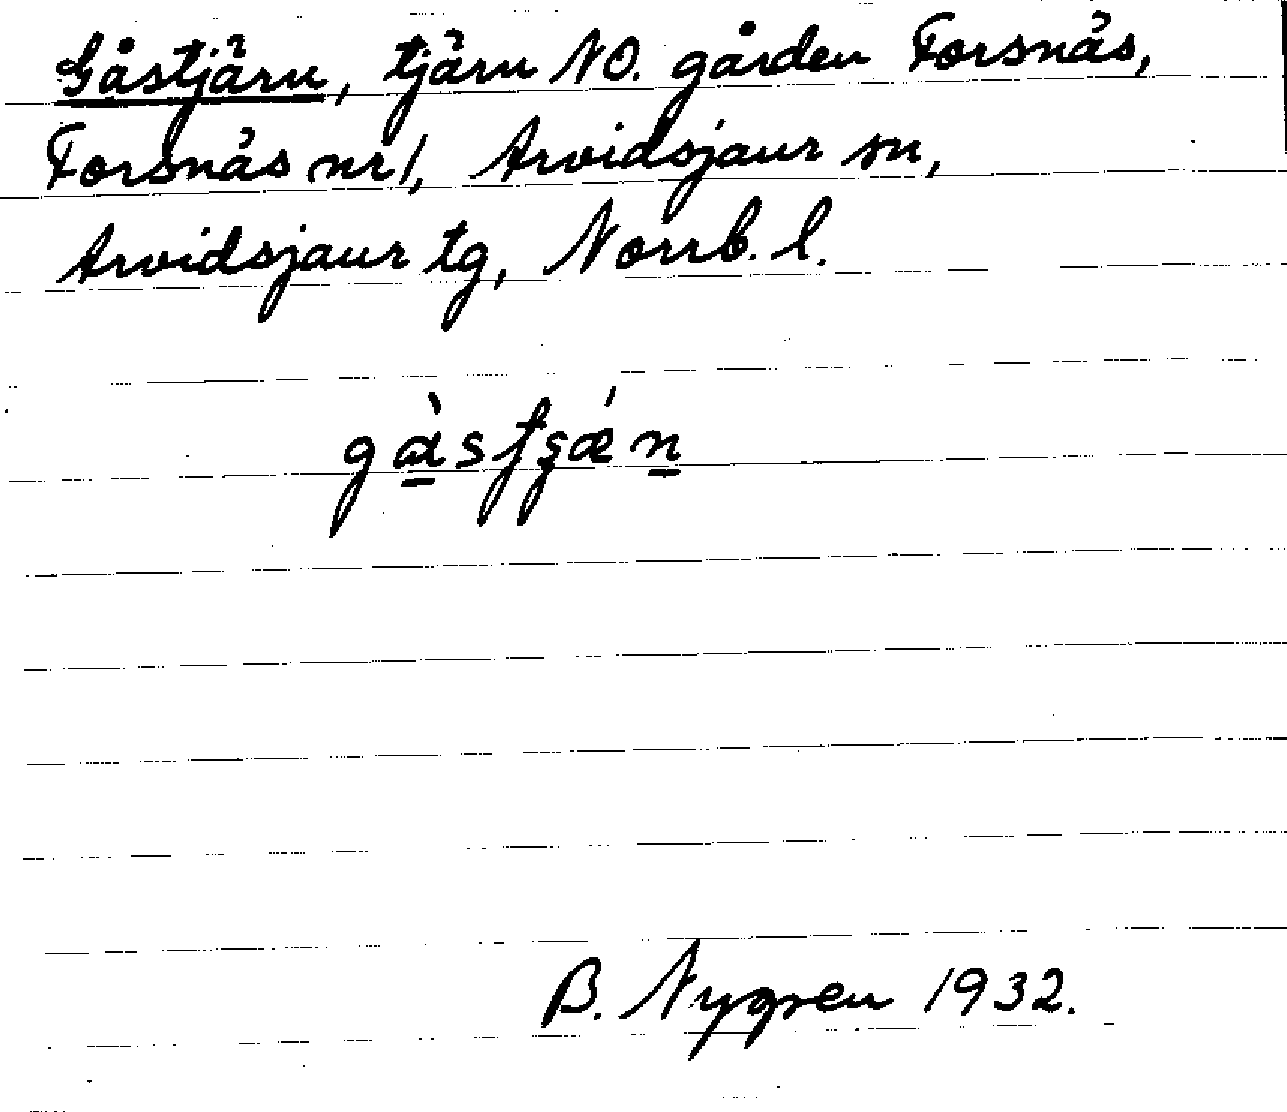 Gåstjärn, tjärn NO. gården Forsnäs,
Forsnäs nr 1, Arvidsjaur sn,
Arvidsjaur tg, Norrb. l.
B. Nygren 1932.